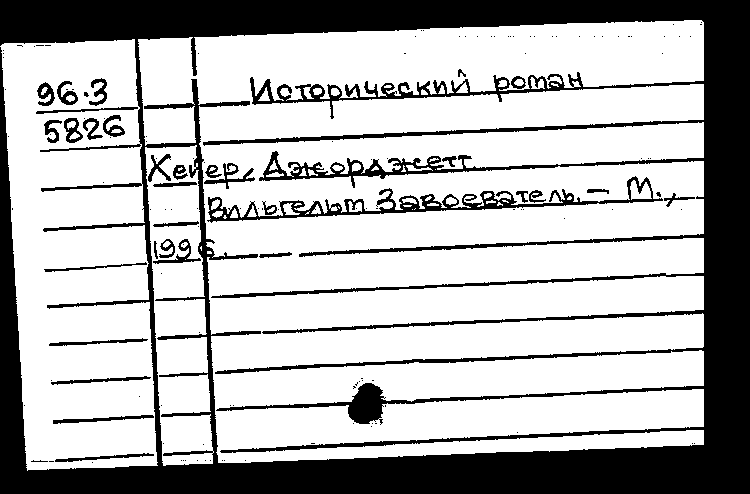 96.3 Исторический роман
5826
Хейер, Джорджетт
Вильгельм Завоеватель. – М.,
1996.